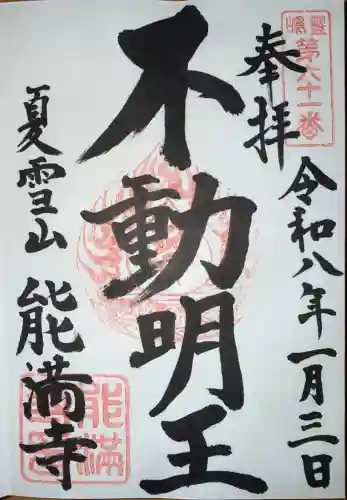 奉拝
令和八年一月三日
不動明王
夏雪山 能満寺
第六十一番